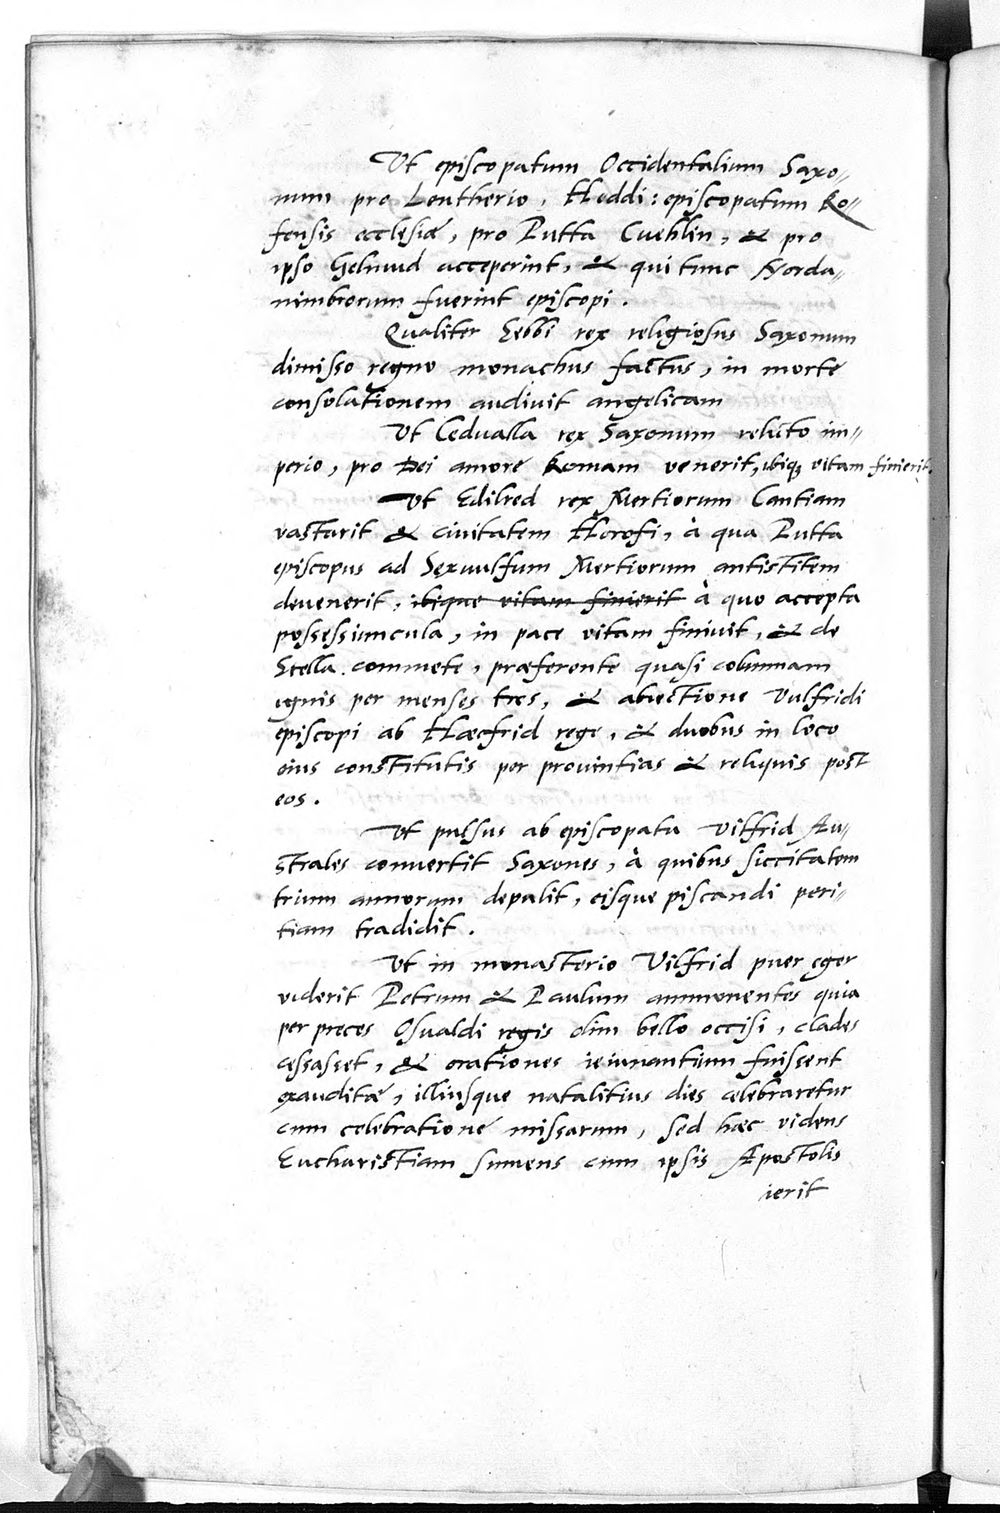 Ut episcopatum Occidentalium Saxo„
num pro Leutherio, Heddi: episcopatum Ro„
fensis ecclesiæ, pro Putta Cuehlin, & pro
ipso Gelmud acceperint, & qui tunc Norda„
nimbrorum fuerint episcopi.
Qualiter Sebbi rex religiosus Saxonum
dimisso regno monachus factus, in morte
consolationem audivit angelicam
Ut Cedualla rex Saxonum relicto im„
perio, pro Dei amore Romam venerit, ibiq; vitam finierit.
Ut Edilred rex Mertiorum Cantiam
vastarit & civitatem Hrofi, à qua Putta
episcopus ad Sexuulfum Mertiorum antistitem
devenerit, ibique vitam finierit à quo accepta
possessiuncula, in pace vitam finivit, & de
Stella commete, præferente quasi columnam
ignis per menses tres, & abiectione Vulfridi
episcopi ab Hæcfrid rege, & duobus in loco
eius constitutis per provintias & reliquis post
eos.
Ut pulsus ab episcopatu Vilfrid Au„
strales convertit Saxones, à quibus siccitatem
trium annorum depulit, eisque piscandi peri„
tiam tradidit.
Ut in monasterio Vilfrid puer ęger
viderit Petrum & Paulum ammonentes quia
per preces Osualdi regis olim bello occisi, clades
cessasset, & orationes ieiunantium fuissent
exauditæ, illiusque natalitius dies celebraretur
cum celebratione missarum, sed hæc videns
Eucharistiam sumens cum ipsis Apostolis
ierit